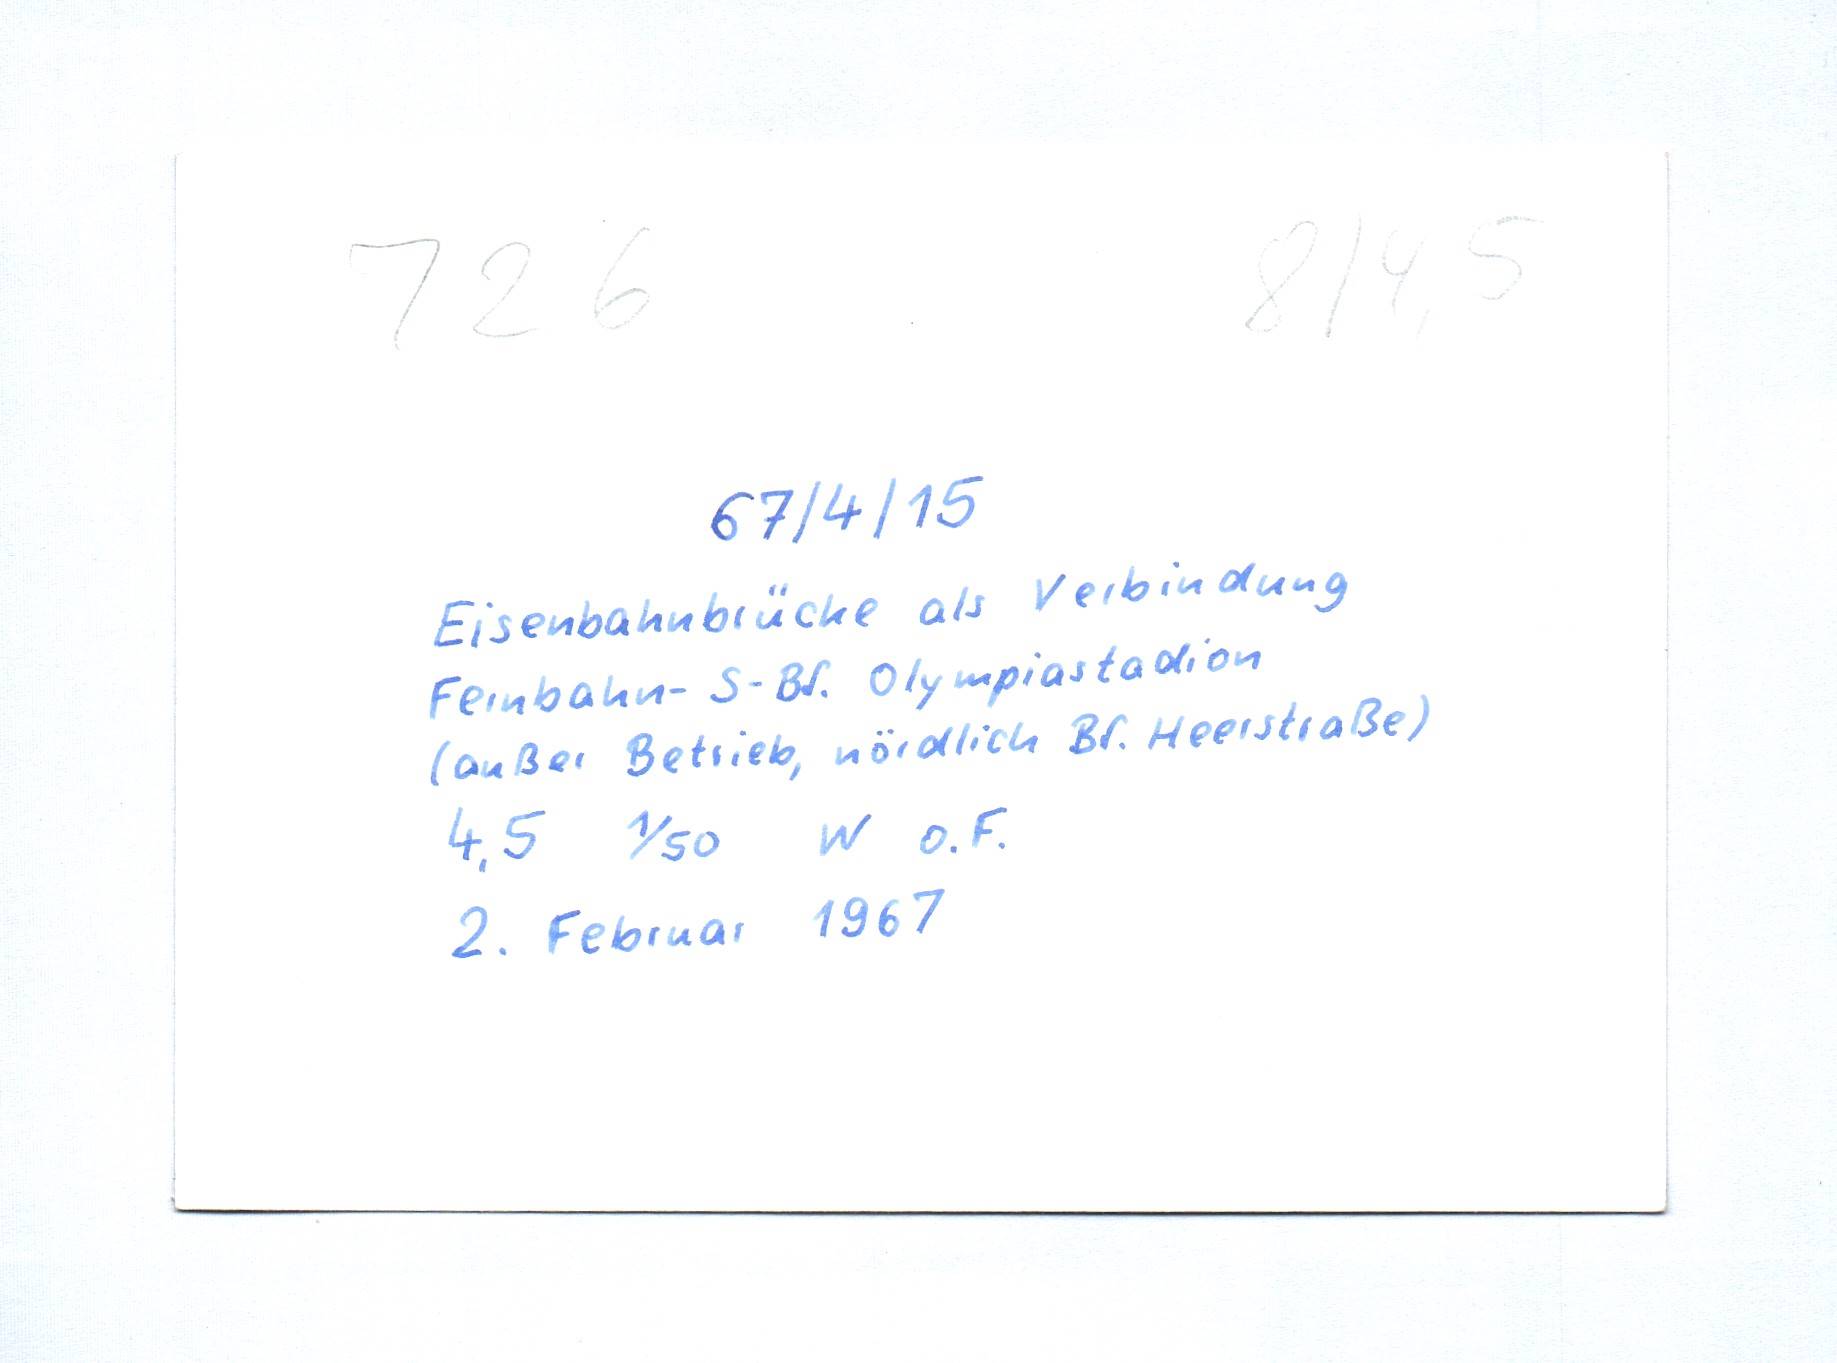 726 8/4,5
67/4/15
Eisenbahnbrücke als Verbindung
Fernbahn- S-Bf. Olympiastadion
(außer Betrieb, nördlich Bf. Heerstraße)
4,5 1/50 W o.F.
2. Februar 1967